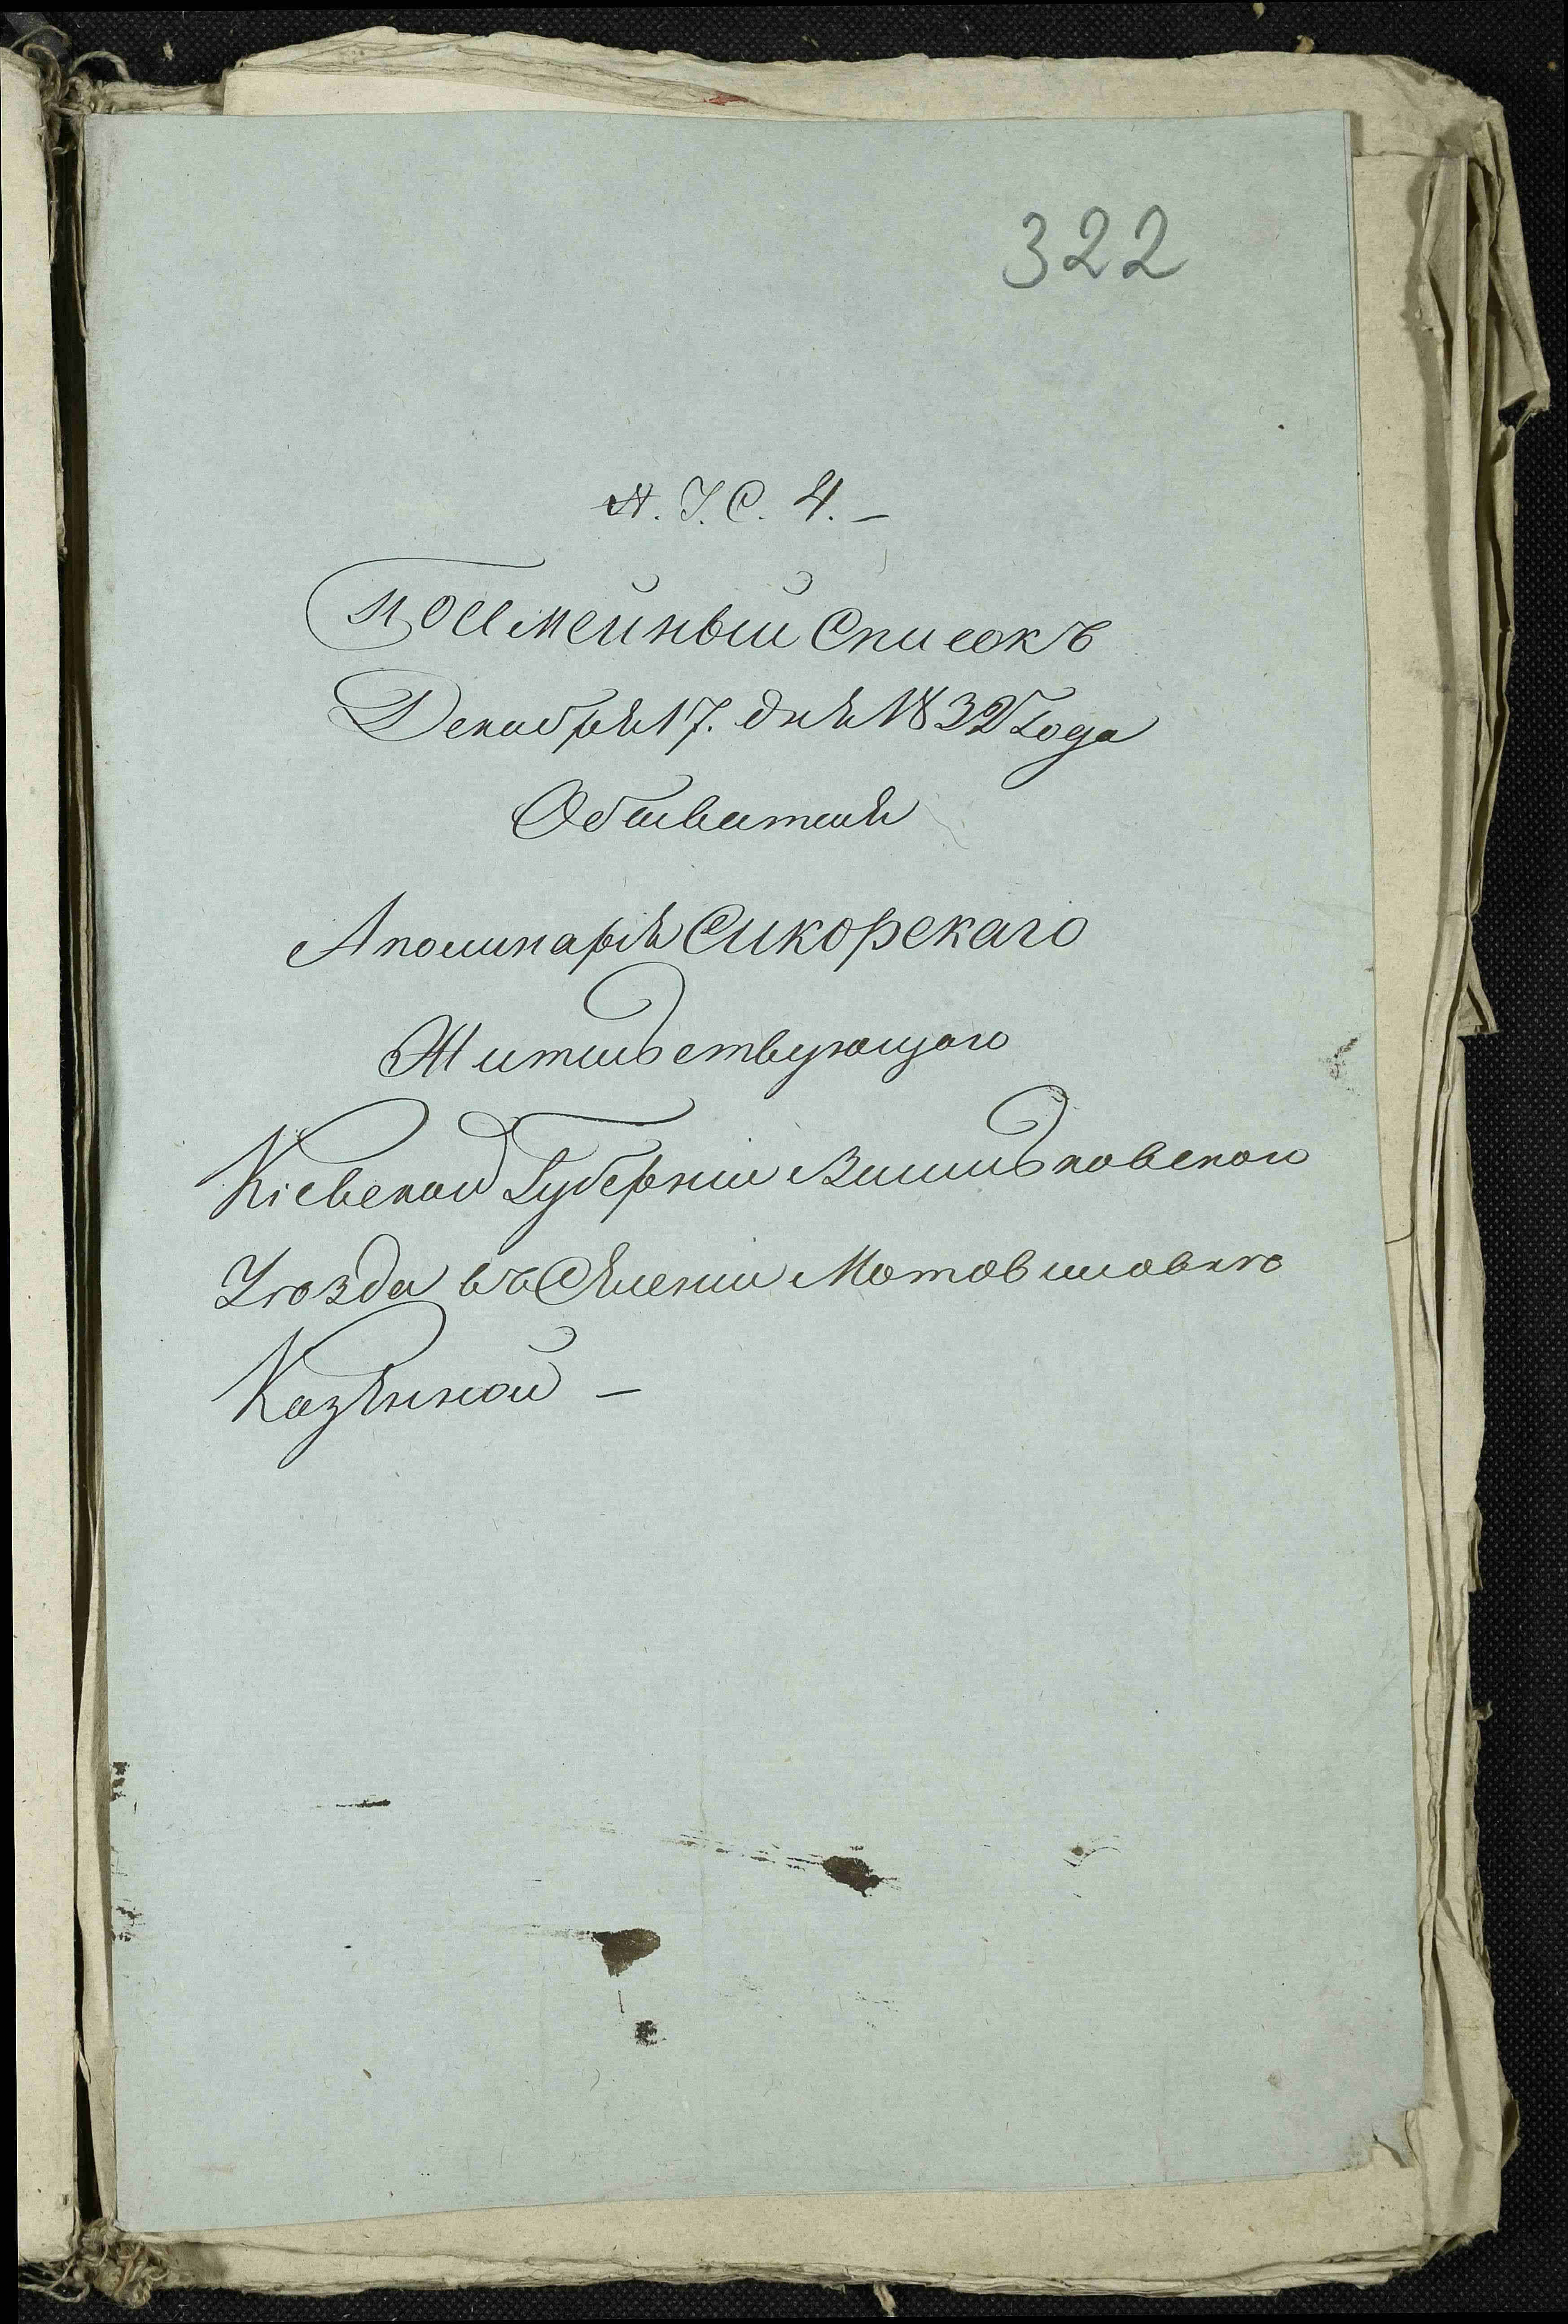 322
А. I. С. 4. –
Посемейный Списокъ
Декабря 17. дня 1832 Года
Обывателя
Аполинарія Сикорскаго
Жительствующаго
Кіевской Губерніи Васильковского
Уѣзда въ Сѣленіи Мотовиловкѣ
Казѣнной –